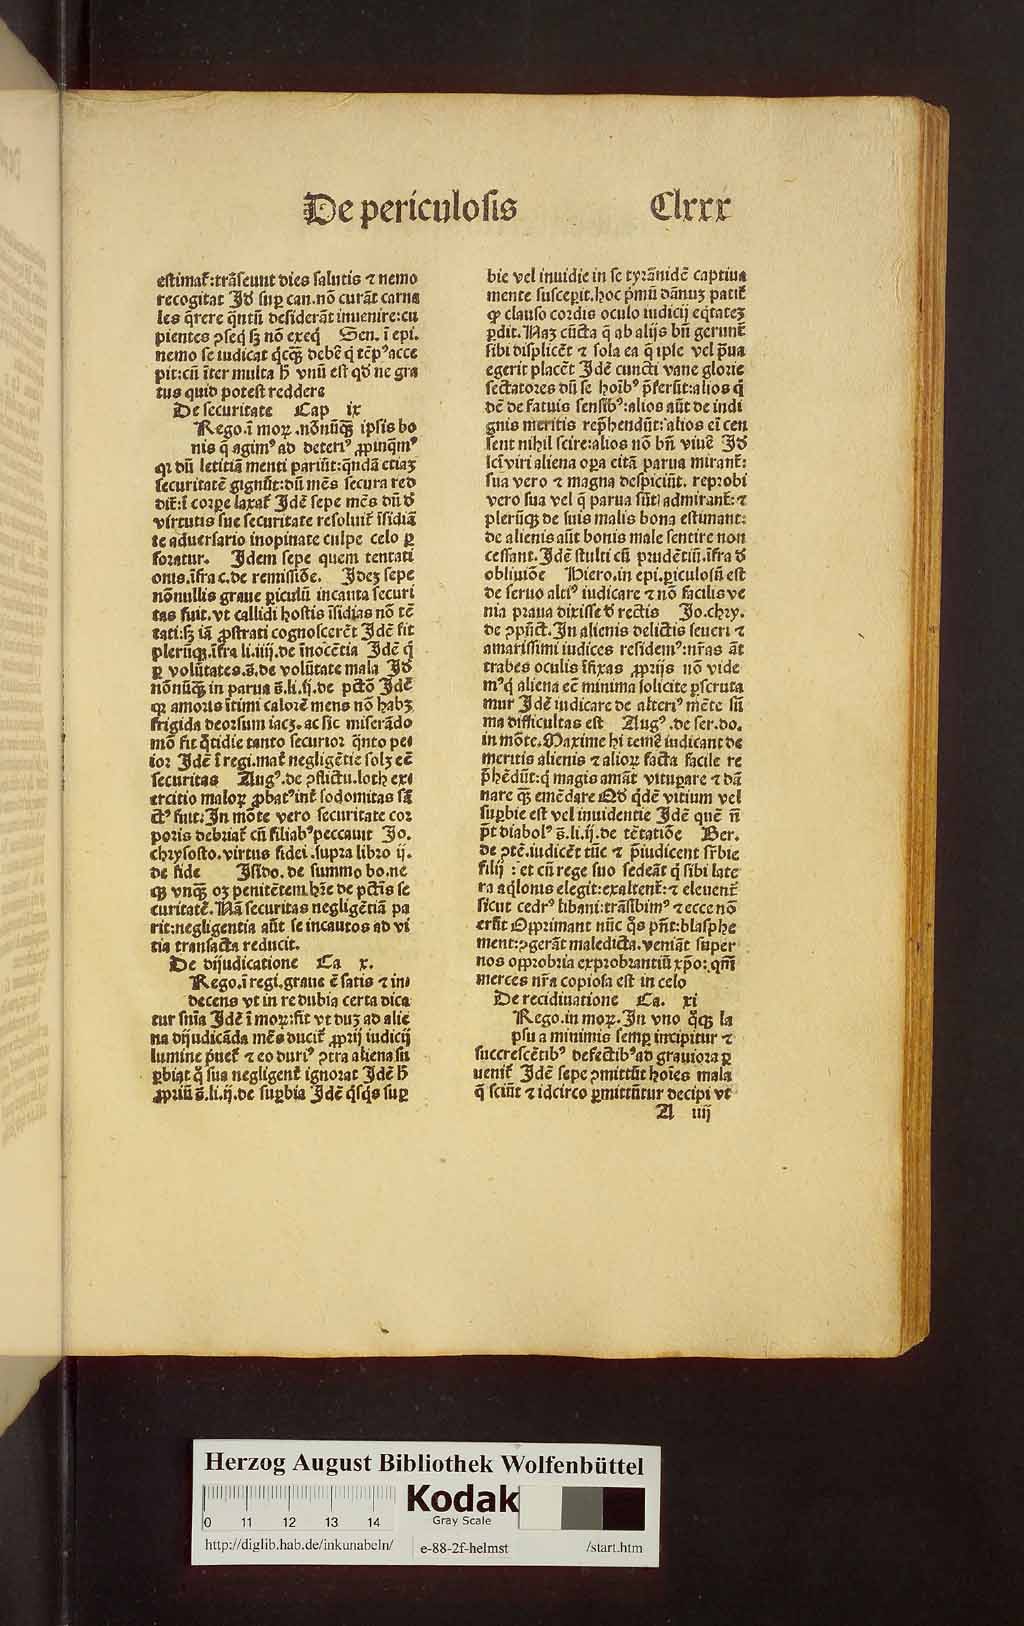 De periculosis Clxxx
estimat᷑:trãseunt dies salutis ⁊ nemo
recogitat Jdẽ suꝑ can.nõ curãt carna
les q̃rere q̃ntũ desiderãt inuenire:cu
pientes ꝯseq̃ sꝫ nõ exeq̃ Sen. ĩ epi.
nemo se iudicat q̃cq̃ꝫ debẽ q̃ tẽpꝰ acce
pit:cũ ĩter multa ħ vnũ est qđ ne gra
tus quid potest reddere
De securitate Cap ix
Rego.ĩ moꝝ.nõnũq̃ꝫ ipsis bo
nis q̃ agimꝰ ad deteriꝰ ꝓpinq̃mꝰ
qꝛ dũ letitiã menti pariũt:q̃ndã etiaꝫ
securitatẽ gignũt:dũ mẽs secura red
dit᷑:ĩ corꝑe laxat᷑ Jdẽ sepe mẽs dũ đ
virtutis sue securitate resoluit᷑ ĩsidiã
te aduersario inopinate culpe celo ꝑ
foratur. Jdem sepe quem tentati
onis.ĩfra c.de remissiõe. Jdeꝫ sepe
nõnullis graue ꝑiculũ incauta securi
tas fuit.vt callidi hostis ĩsidias nõ tẽ
tati:sꝫ iã ꝓstrati cognoscerẽt Jdẽ fit
plerũqꝫ.ĩfra li.iiij.de ĩnocẽtia Jdẽ q̃
ꝑ volũtates.s̃.de volũtate mala Jđ
nõnũq̃ꝫ in parua s̃.li.ij.de pctõ Jdẽ
qꝛ amoris ĩtimi calorẽ mens nõ habꝫ
frigida deorsum iacꝫ.ac sic miserãdo
mõ fit q̃tidie tanto securior q̃nto pe⸗
ior Jdẽ ĩ regi.mat᷑ negligẽtie solꝫ eẽ
securitas Augꝰ.de ꝯflictu.loth ex⸗
ercitio maloꝝ ꝓbatꝰint᷑ sodomitas sã
ctꝰ fuit:Jn mõte vero securitate cor
poris debriat᷑ cũ filiabꝰpeccauit Jo.
chrysosto.virtus fidei.supra libro ij.
de fide Jsido.de summo bo.ne
qꝫ vnq̃ꝫ oꝫ penitẽtem hr̃e de pctĩs se
curitatẽ.Nã securitas negligẽtiã pa
rit:negligentia aũt se incautos ad vi
tia transacta reducit.
De dijudicatione Ca x.
Rego.ĩ regi.graue ẽ satis ⁊ in⸗
decens vt in re dubia certa dica
tur sñia Jdẽ ĩ moꝝ:fit vt duꝫ ad alie
na dijudicãda mẽs ducit᷑ ꝓprij iudicij
lumine p̃uet᷑ ⁊ eo duriꝰ ꝯtra aliena su
ꝑbiat q̃ sua negligent᷑ ignorat Jdẽ ħ
ꝓpriũ s̃.li.ij.de suꝑbia Jdẽ q̃sq̃s suꝑ
bie vel inuidie in se tyrãnidẽ captiua
mente susceꝑit.hoc p̃mũ dãnuꝫ patit᷑
ꝙ clauso cordis oculo iudicij eq̃tateꝫ
ꝑdit.Naꝫ cũcta q̃ ab alijs bñ gerunt᷑
sibi displicẽt ⁊ sola ea q̃ ipse vel p̃ua
egerit placẽt Jdẽ cuncti vane glorie
sectatores dũ se hoĩbꝰ p̃ferũt:alios q̃
dẽ de fatuis sensibꝰ:alios aũt de indi
gnis meritis rep̃hendũt:alios eĩ cen
sent nihil scire:alios nõ bñ viuẽ Jđ
sc̃i viri aliena oꝑa etiã parua mirant᷑:
sua vero ⁊ magna despiciũt. reprobi
vero sua vel q̃ parua sũt admirant᷑:⁊
plerũqꝫ de suis malis bona estimant:
de alienis aũt bonis male sentire non
cessant.Jdẽ stulti cũ prudẽtiũ.ĩfra đ
obliuiõe Hiero.in epi.ꝑiculosũ est
de seruo altiꝰ iudicare ⁊ nõ facilis ve
nia praua dixisse đ rectis Jo.chry.
de ꝯpũct.Jn alienis delictis seueri ⁊
amarissimi iudices residemꝰ:nr̃as ãt
trabes oculis ĩfixas ꝓprijs nõ vide
mꝰq̃ aliena eẽ minima solicite ꝑscruta
mur Jdẽ iudicare de alteriꝰ mẽte sũ
ma difficultas est Augꝰ.de ser.do.
in mõte.Maxime hi temẽ iudicant de
meritis alienis ⁊ alioꝝ facta facile re
p̃hẽdũt:q̃ magis amãt vituꝑare ⁊ dã
nare q̃ꝫ emẽdare Qđ q̃dẽ vitium vel
suꝑbie est vel inuidentie Jdẽ quẽ ñ
p̃t diabolꝰ s̃.li.ij.de tẽtatiõe Ber.
de ꝯtẽ.iudicẽt tũc ⁊ p̃iudicent sr̃bie
filij : et cũ rege suo sedeãt q̃ sibi late
ra aq̃lonis elegit:exaltent᷑:⁊ eleuent᷑
sicut cedrꝰ libani:trãsibimꝰ ⁊ ecce nõ
erũt Opprimant nũc q̃s pñt:blasphe
ment:ꝯgerãt maledicta.veniãt super
nos opprobria exprobrantiũ xp̃o:qm̃
merces nr̃a copiosa est in celo
De recidiuatione Ca. xi
Rego.in moꝝ.Jn vno q̃qꝫ la
psu a minimis semꝑ incipitur ⁊
succrescẽtibꝰ defectibꝰad grauiora ꝑ
uenit᷑ Jdẽ sepe ꝯmittũt hoĩes mala
q̃ sciũt ⁊ idcirco ꝑmittũtur decipi vt
A iiij
Herzog August Bibliothek Wolfenbüttel
0 11 12 13 14
Kodak
Gray Scale
http://diglib.hab.de/inkunabeln/ e-88-2f-helmst /start.htm